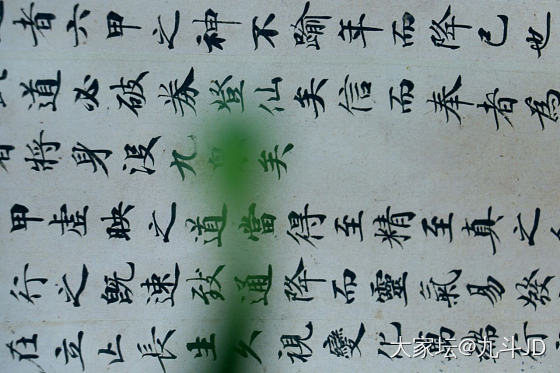 者六甲之神不踰年而降己也
道必破券登仙矣信而奉者為
者將身没九矣
甲虛映之道當得至精至真之
行之既速致通降而靈氣易發
在立止長生久視變化萬端行
大家坛@九斗JD